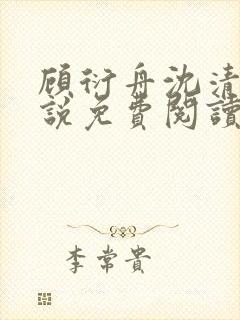 顾衍舟沈清
說免費閱讀
李常貴